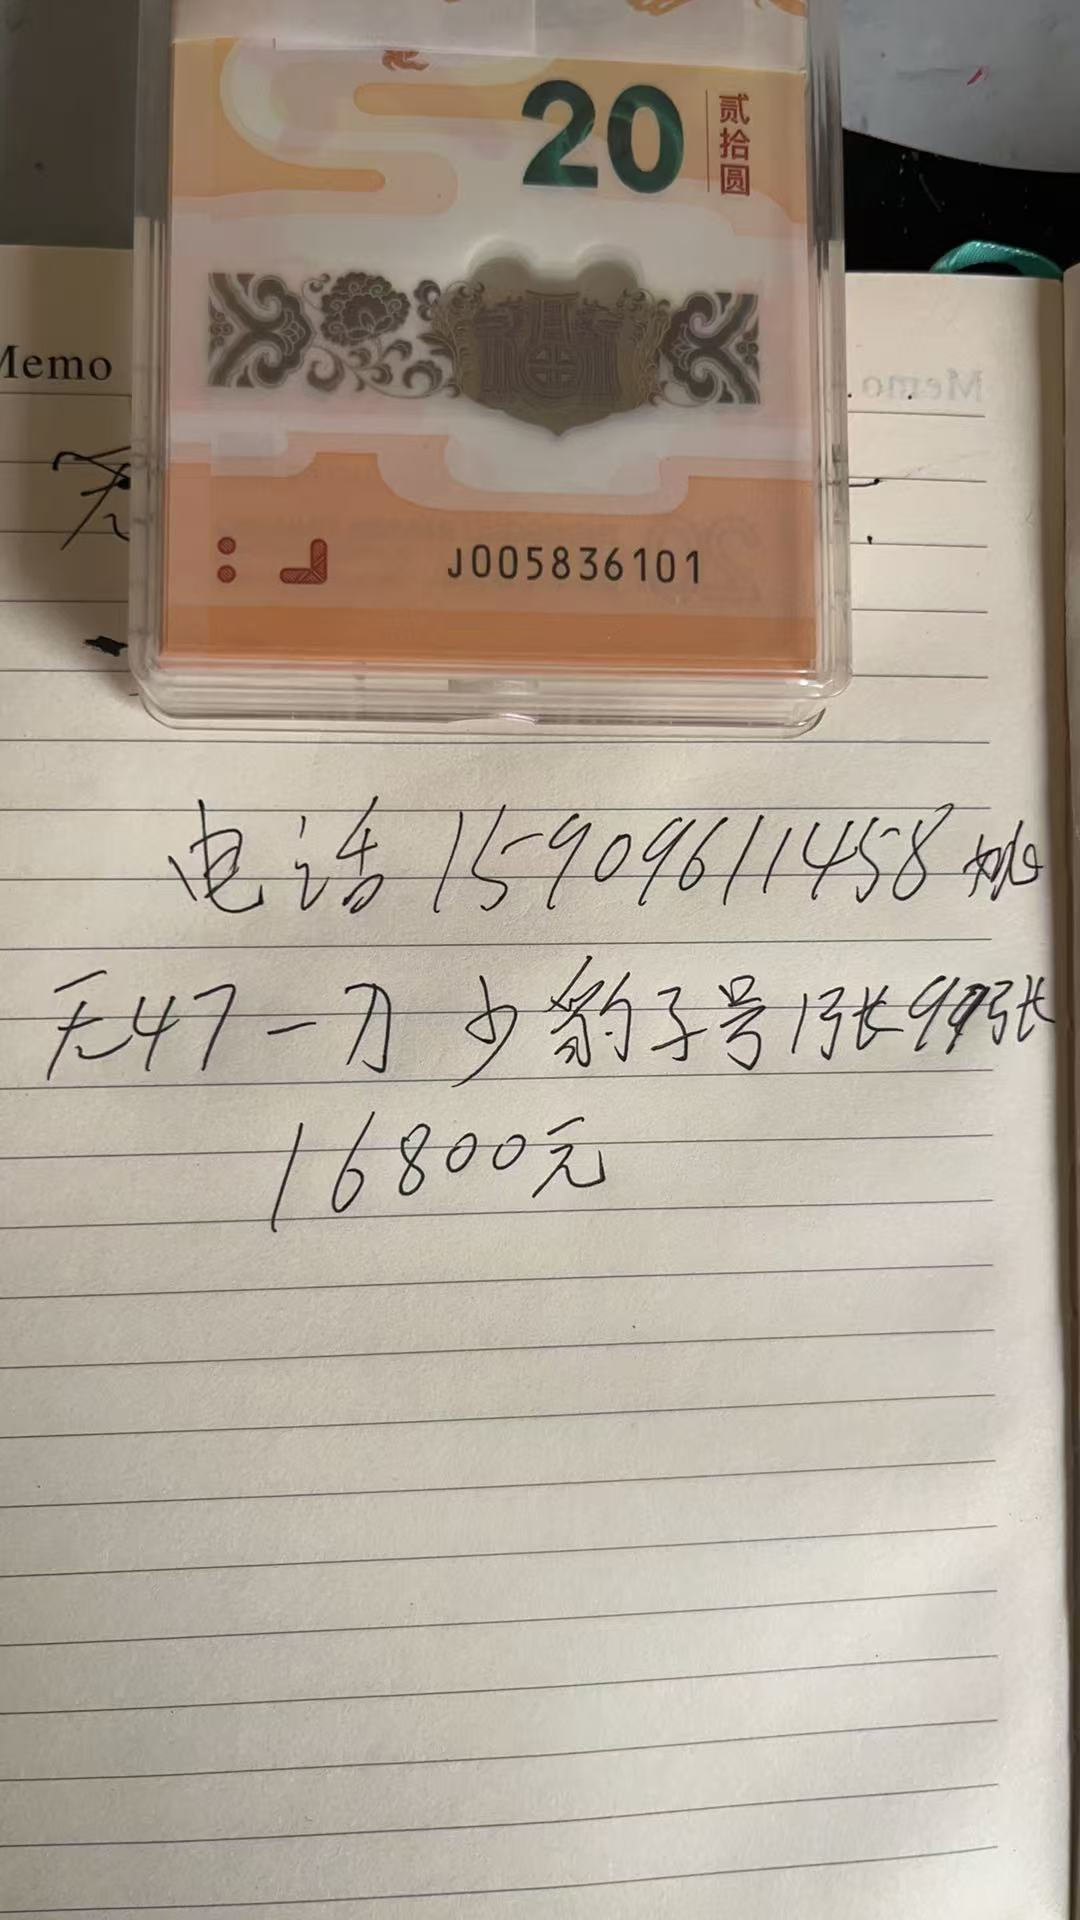 20
贰拾圆
J005836101
Memo
无
电话15909611458姚
无47一刀 少豹子号1张99张
16800元